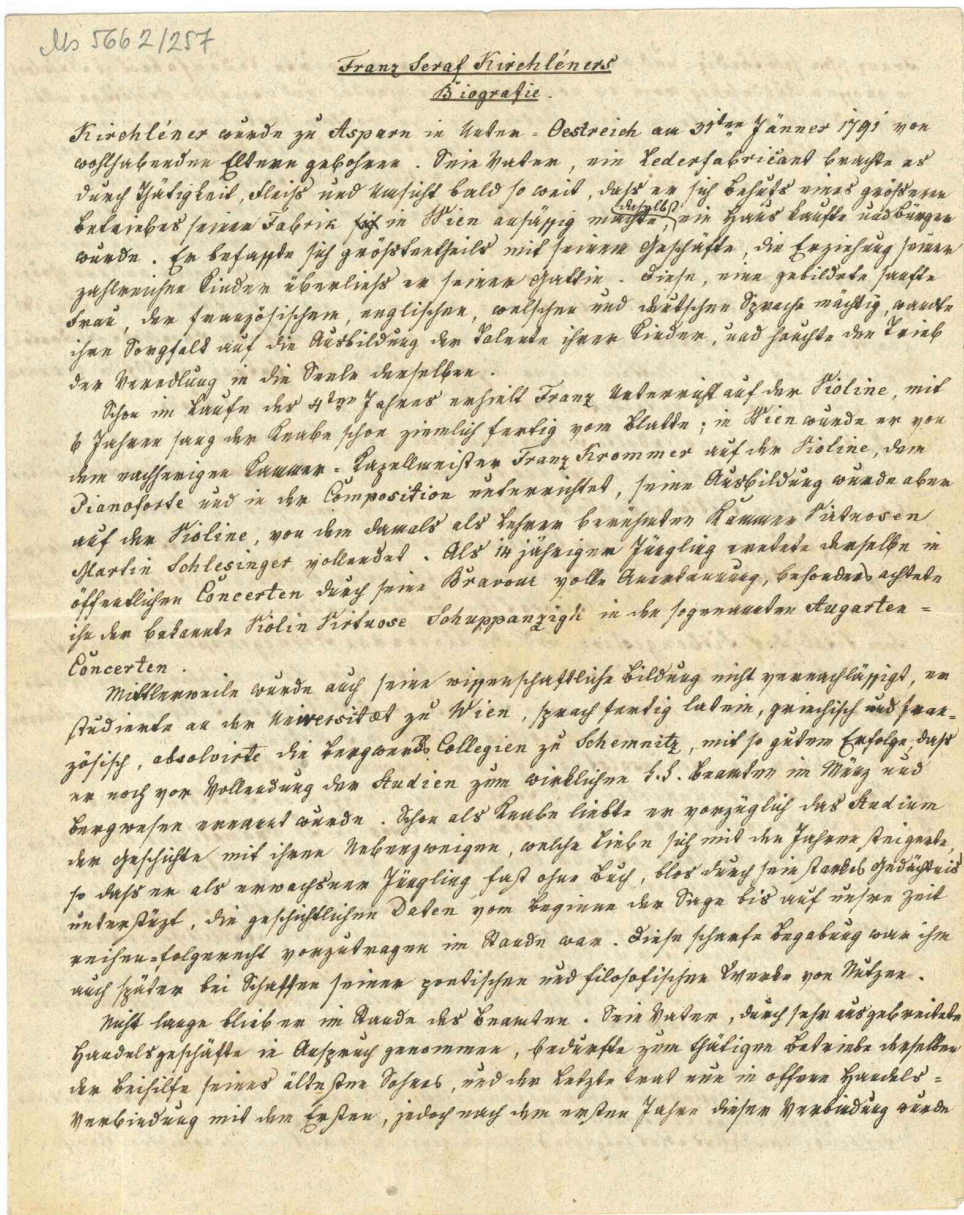 Ms 5662/257
Franz Seraf Kirchléners
Biografie.
Kirchléner wurde zu Asparn in Unter-Oestreich am 31ten Jänner 1791 von
wohlhabenden Eltern gebohren. Sein Vater, ein Lederfabricant brachte es
durch Thätigkeit, Fleiß und Umsicht bald so weit, dass er sich Behufs eines grösseren
Betriebes seiner Fabrik in Wien ansässig machte, daselbst ein Haus kaufte und Bürger
wurde. Er befasste sich grösstentheils mit seinem Geschäfte, die Erziehung seiner
zahlreichen Kinder überliess er seiner Gattin. Diese, eine gebildete sanfte
Frau, der französischen, englischen, welschen und deutschen Sprache mächtig, wandte
ihre Sorgfalt auf die Ausbildung der Talente ihrer Kinder, und hauchte den Trieb
der Veredlung in die Seele derselben.
Schon im Laufe des 4ten Jahres erhielt Franz Unterricht auf der Violine, mit
6 Jahren sang der Knabe schon ziemlich fertig vom Blatte; in Wien wurde er von
dem nachherigen Kammer-Kapellmeister Franz Krommer auf der Violine, dem
Pianoforte und in der Composition unterrichtet, seine Ausbildung wurde aber
auf der Violine, von dem damals als Lehrer berühmten Kammer Virtuosen
Martin Schlesinger vollendet. Als 14 jähriger Jüngling erntete derselbe in
öffentlichen Concerten durch seine Bravour volle Anerkennung, besonders achtete
ihn der bekannte Violin Virtuose Schuppanzigh in den sogenannten Augarten-
Concerten.
Mittlerweile wurde auch seine wissenschaftliche Bildung nicht vernachlässigt, er
studierte an der Universitæt zu Wien, sprach fertig latein, griechisch und fran-
zösisch, absolvirte die Bergwerks Collegien zu Schemnitz, mit so gutem Erfolge, dass
er noch vor Vollendung der Studien zum wirklichen k.k. Beamten im Münz und
Bergwesen ernannt wurde. Schon als Knabe liebte er vorzüglich das Studium
der Geschichte mit ihren Nebenzweigen, welche Liebe sich mit den Jahren steigerte,
so dass er als erwachsner Jüngling fast ohne Buch, blos durch sein starkes Gedächtnis
unterstüzt, die geschichtlichen Daten vom Beginne der Sage bis auf unsre Zeit
reihen-folgerecht vorzutragen im Stande war. Diese scharfe Begabung war ihm
auch später bei Schaffen seiner poetischen und filosofischen Werke von Nutzen.
Nicht lange blieb er im Stande des Beamten. Sein Vater, durch sehr ausgebreitete
Handelsgeschäfte in Anspruch genommen, bedurfte zum Betriebe derselben
der Beihilfe seines ältesten Sohnes, und der Letzte trat nun in offene Handels-
Verbindung mit dem Ersten, jedoch nach dem ersten Jahre dieser Verbindung wurde